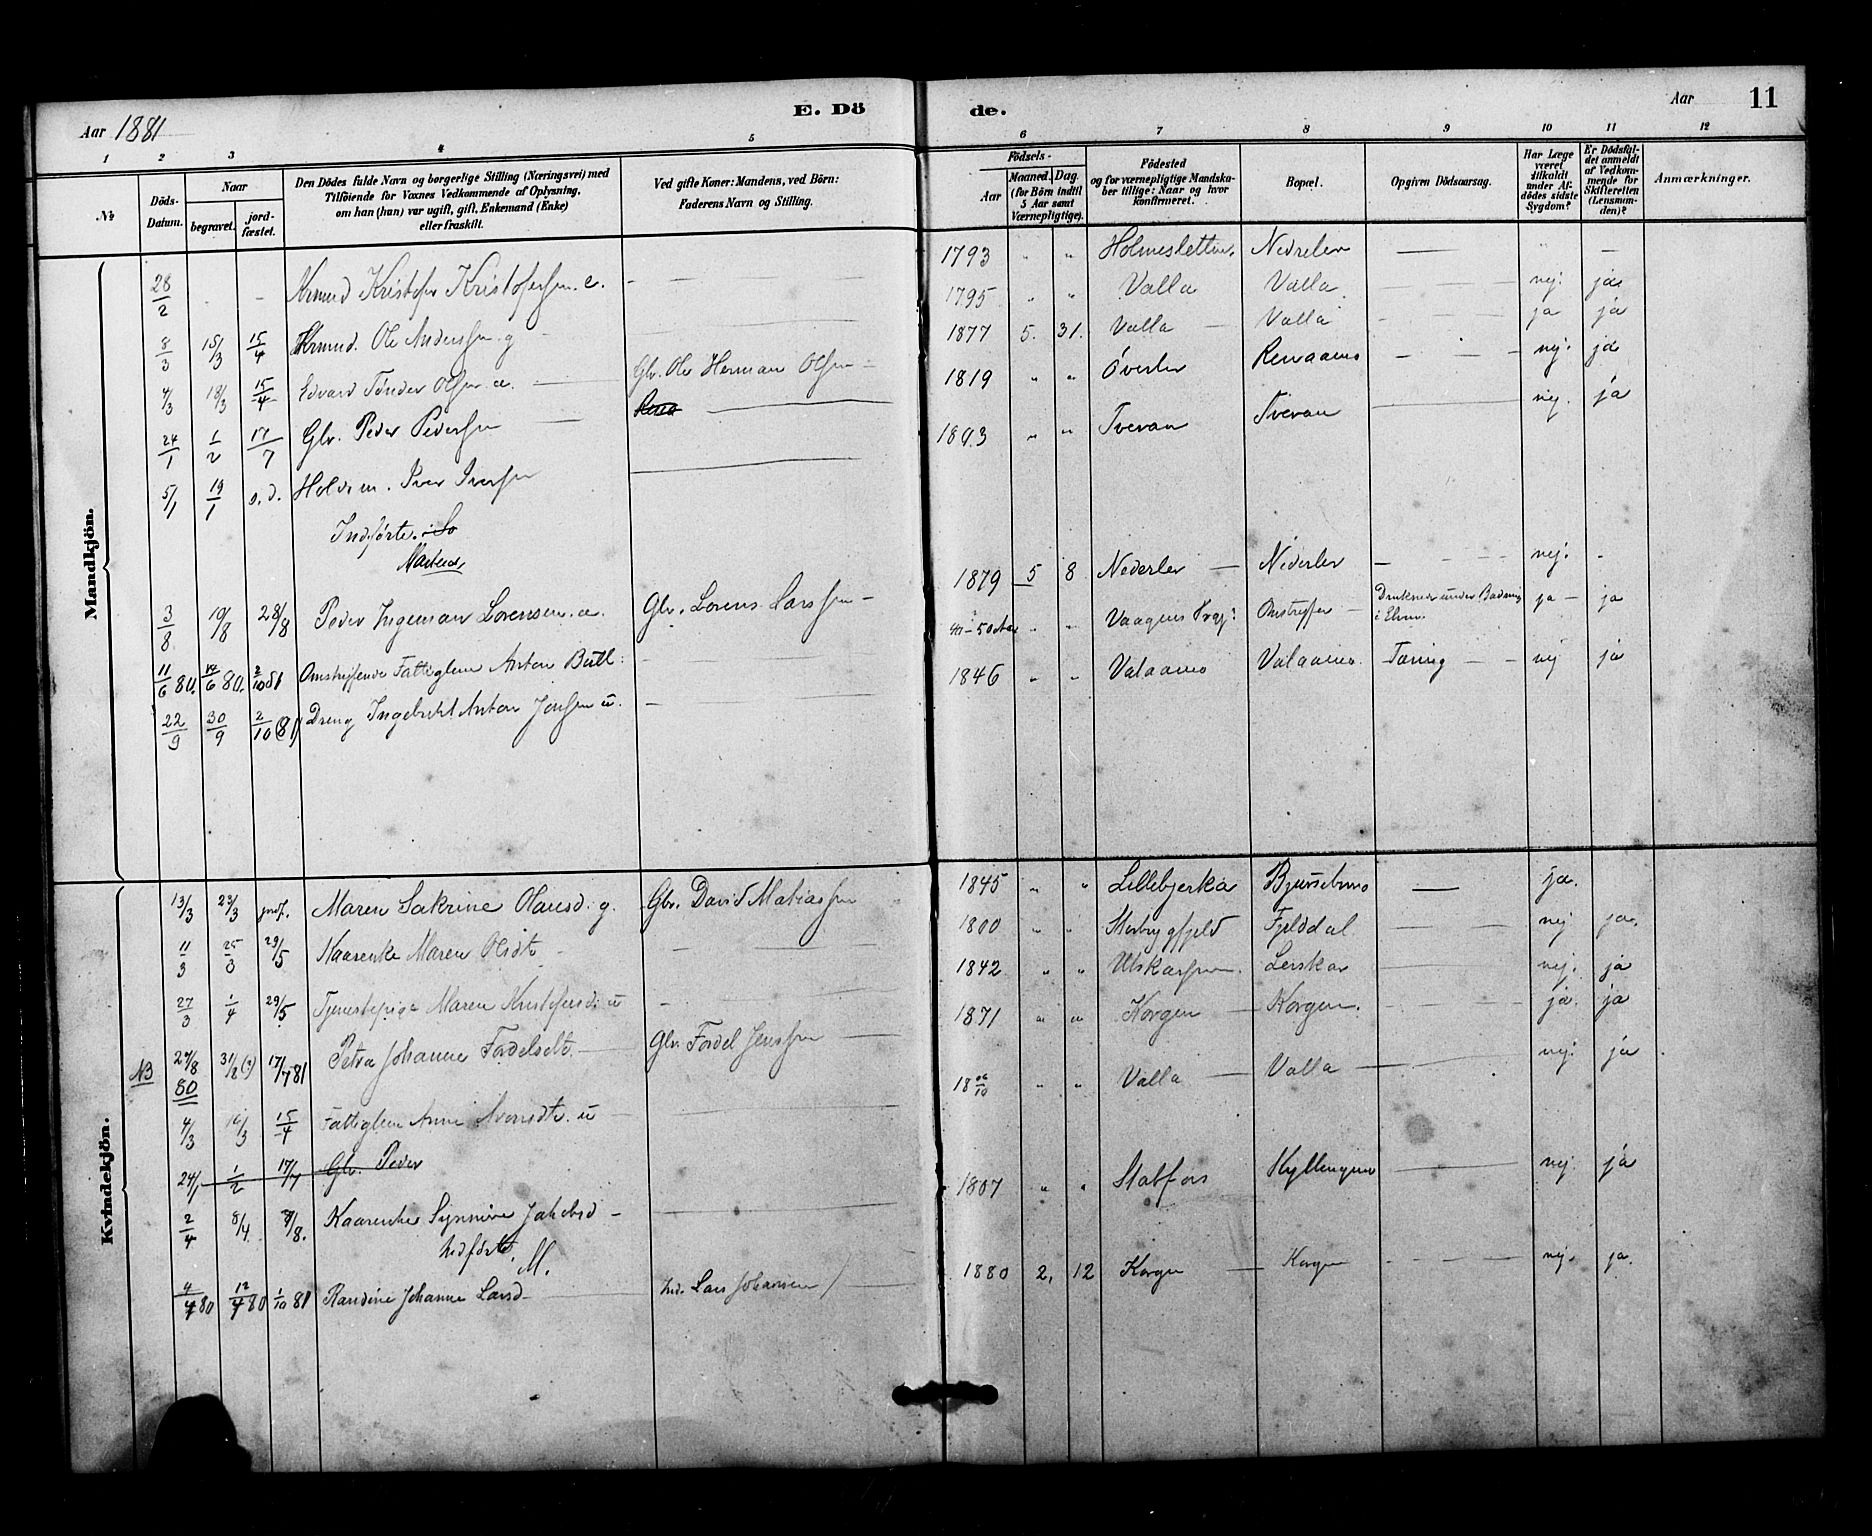 E. Dö de.
Aar 1881
Aar 11
1 2 3 4 5 6 7 8 9 10 11 12
№
Döds-Datum.
Naar
begravet.
jord-fæstet.
Den Dödes fulde Navn og borgerlige Stilling (Næringsvei) med
Tilföiende for Voxnes Vedkommende af Oplysning,
om han (hun) var ugift, gift, Enkemand (Enke)
eller fraskilt.
Ved gifte Koner: Mandens, ved Börn:
Faderens Navn og Stilling.
Födsels-
Aar
Maaned. Dag.
(for Börn indtil
5 Aar samt
Værnepligtige).
Födested
og for værnepligtige Mandska-
ber tillige: Naar og hvor
konfirmeret.
Bopæl.
Opgiven Dödsaarsag.
Har Læge
været
tilkaldt
under Af-
dödes sidste
Sygdom?
Er Dödsfal-
det anmeldt
af Vedkom-
mende for
Skifteretten
(Lensman-
den)?
Anmærkninger.
Mandkjön.
28/2 - - Kristofer Kristofersen. e. - 1793 " " Nedreler — " —
8/3 15/3 15/4 Ole Anderssen. g - 1795 " " Valla Valla — nej. ja
4/3 18/3 15/4 Edvard Tønder Olsen æ. — Gbr. Ole Herman Olsen — 1877 5. 31. Valla — Valla - ja ja
24/1 1/2 17/7 Gbr. Peder Pedersen — 1819 " " Överler — nej. ja
5/1 19/1 s.d. Iver Iversen — 1803 " " Tveraa Tveraa — nej. ja
Indførte.
3/8 19/8 28/8 Peder Ingeman Lorensen. æ. Gbr. Lorens Larssen — 1879 5 8 Nederler — Nederler — nej. -
11/6 80. 14/6 80. 2/10 81 Omstreifende Fattiglem Anton - 50 Aar " " Omstreifer — Druknede under Badning
i Elven. ja — ja
22/9 30/9 2/10 (81) Dreng Ingebrikt Anton Jensen u. — 1846 " " Valaamo Valaamo. Tæring — nej ja
Kvindekjön.
13/3 23/3 jndf. Maren Sakrine Olausd. g. Gbr. David Matiassen 1845 " " Lillebjerka — ja.
11/3 25/3 29/5 Kaarenke Maren Olsdtr - 1800 " " Storbrygfjeld Fjelddal — nej ja.
27/3 1/4 29/5 Tjenestepige Maren Kristofersd. u - 1842 " " Lerskar — nej. ja
NB 29/8 80 31/8 (?) 17/7 81 Petra Johanne Fordelsdt. — Gbr. Fordel Jenssen — 1871 " " Korgen — Korgen. — ja. ja
4/3 16/3 15/4 Fattiglem Anne u — " " Valla — Valla — nej. ja
24/1 1/2 17/7 Gbr. Peder
2/4 8/4. Kaarenke Synnive Jakobsd — 1807 " " Stabfors Kyllingmo — nej. ja
Indførte.
M.
4/4 80 12/4 80 1/10 81 Randine Johanne Larsd — Ind. Lars Johansen — 1880 2. 12 Korgen — Korgen — nej. ja.